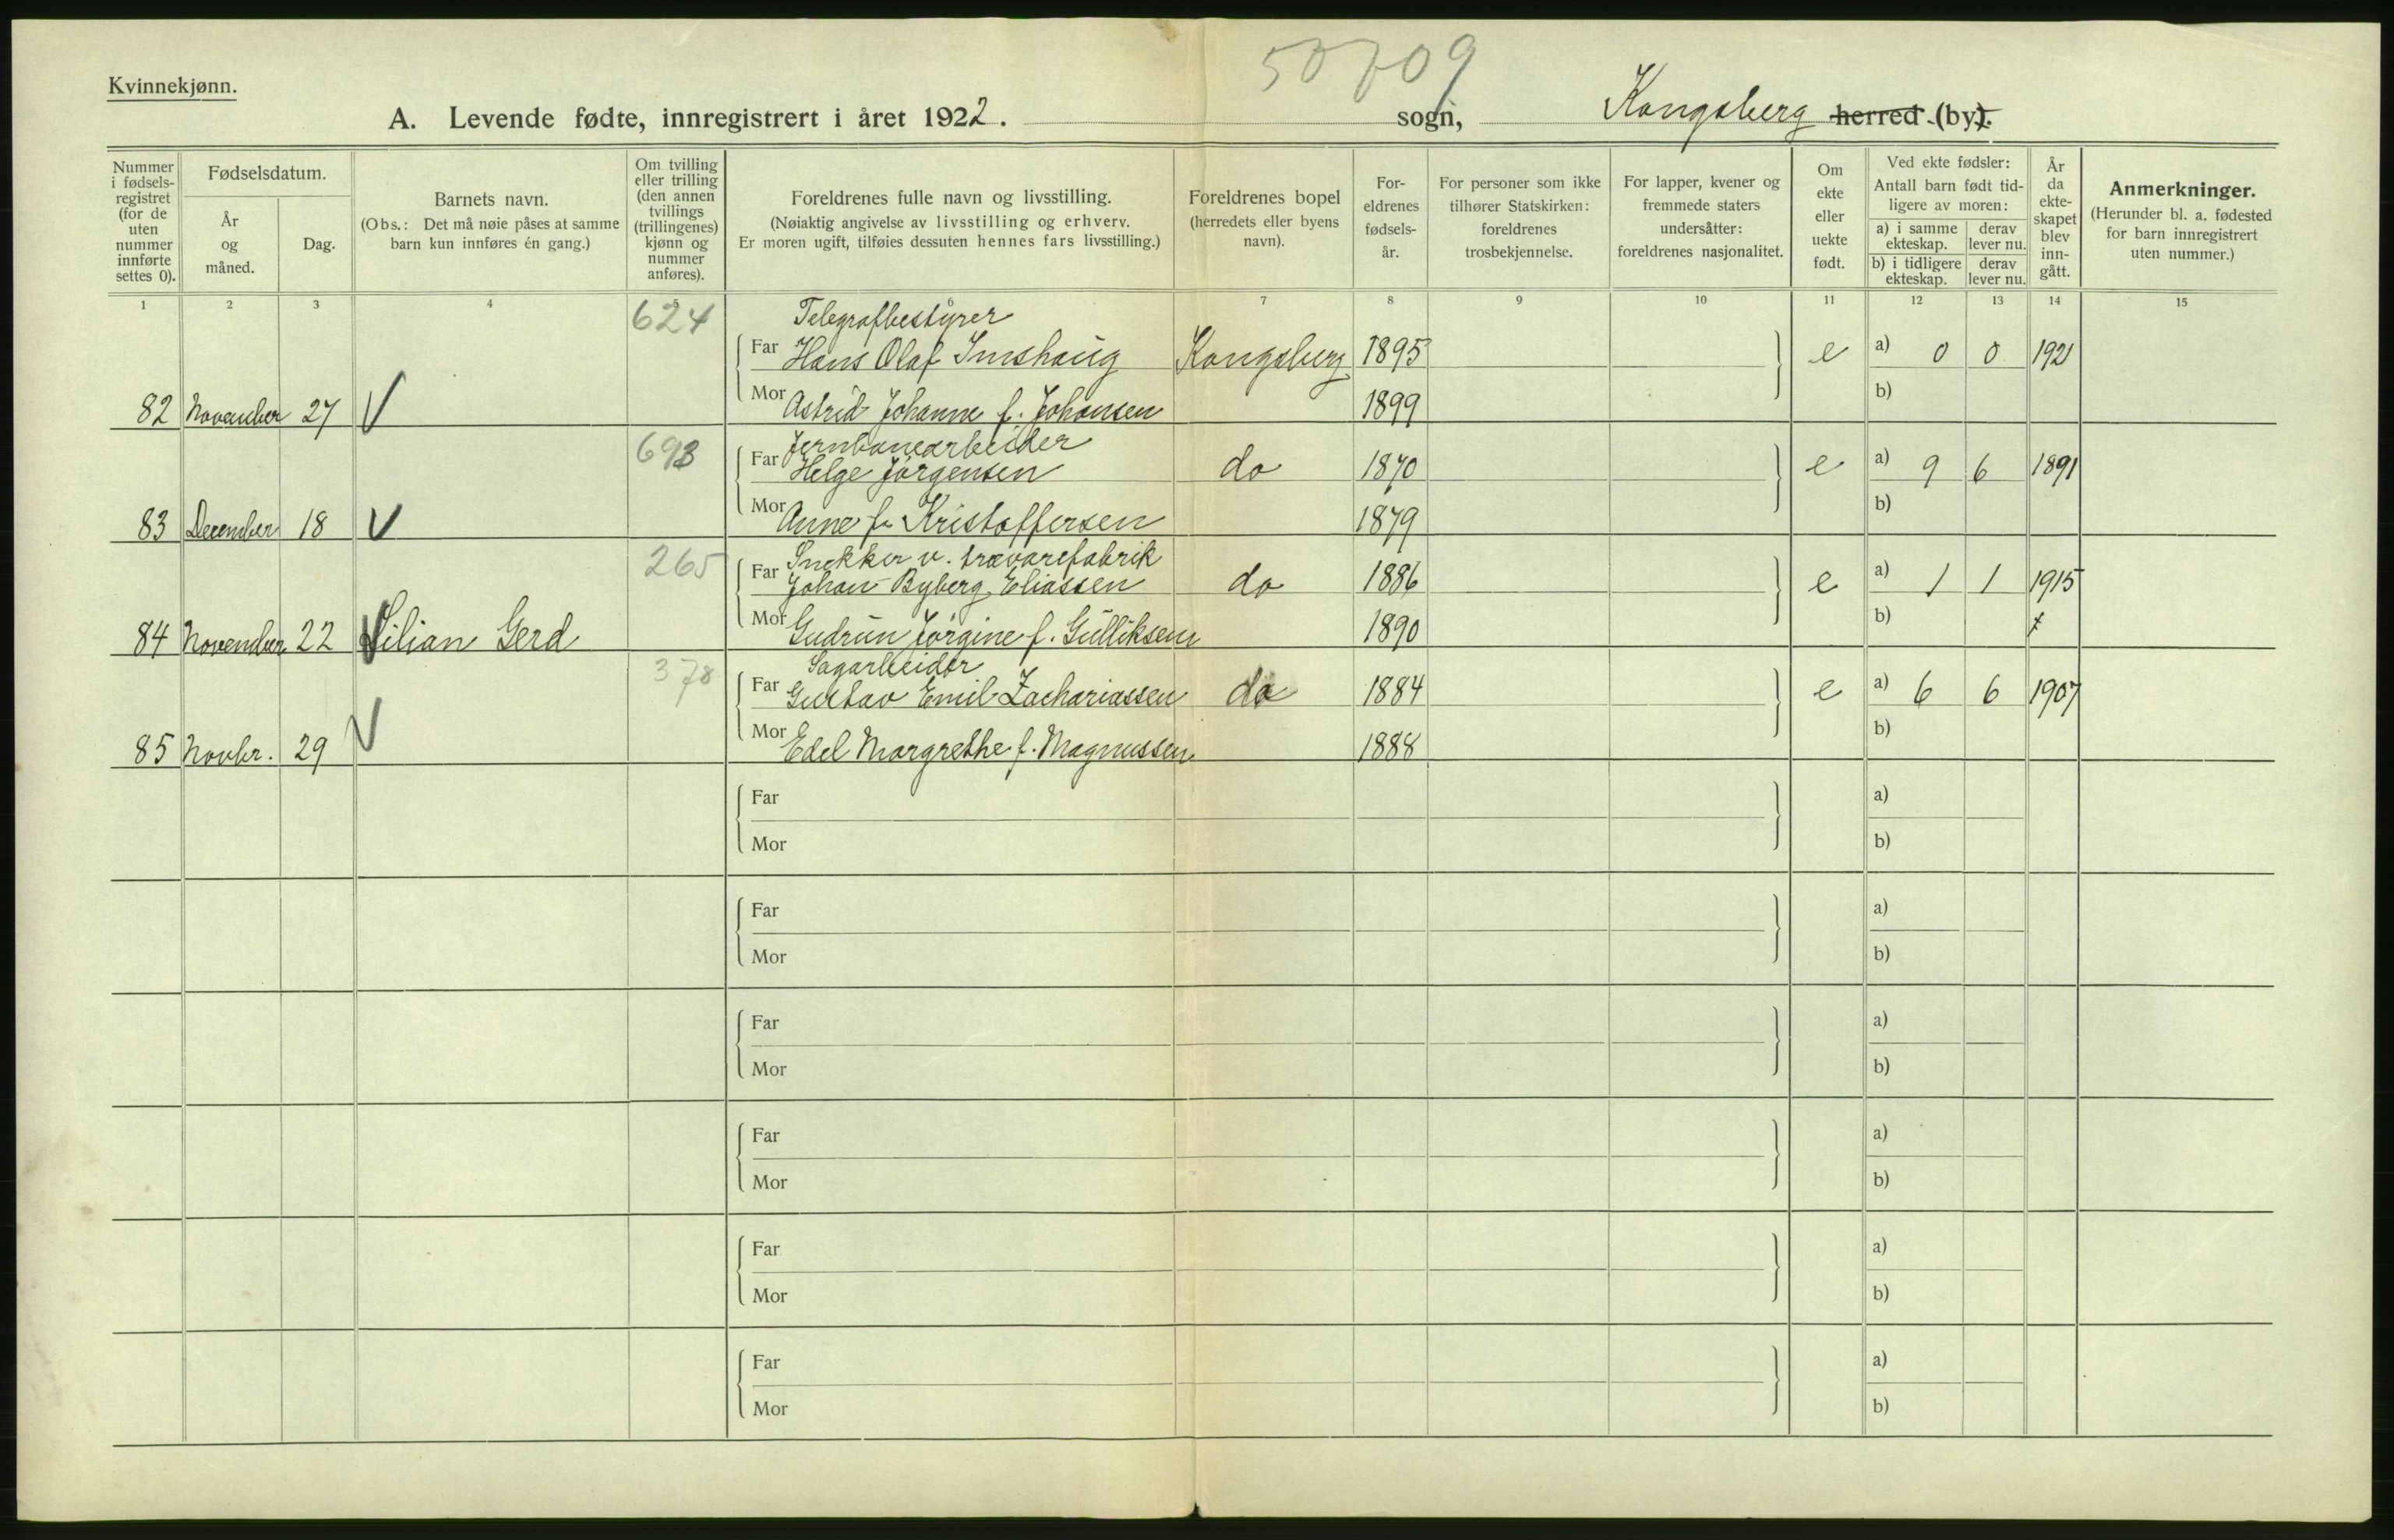 Kvinnekjønn.
A. Levende fødte, innregistrert i året 1922. sogn, Kongsberg herred (by).
Nummer i fødsels-registret (for de uten nummer innførte settes 0).
Fødselsdatum.
År og måned.
Dag.
Barnets navn.
(Obs.: Det må nøie påses at samme barn kun innføres én gang.)
Om tvilling eller trilling (den annen tvillings (trillingenes) kjønn og nummer anføres).
Foreldrenes fulle navn og livsstilling.
(Nøiaktig angivelse av livsstilling og erhverv.
Er moren ugift, tilføies dessuten hennes fars livsstilling.)
Foreldrenes bopel
(herredets eller byens navn).
For-eldrenes fødsels-år.
For personer som ikke tilhører Statskirken: foreldrenes trosbekjennelse.
For lapper, kvener og fremmede staters undersåtter: foreldrenes nasjonalitet.
Om ekte eller uekte født.
Ved ekte fødsler:
Antall barn født tid-ligere av moren:
a) i samme ekteskap.
derav lever nu.
b) i tidligere ekteskap.
derav lever nu.
År da ekte-skapet blev inn-gått.
Anmerkninger.
(Herunder bl. a. fødested for barn innregistrert uten nummer.)
1 2 3 4 5 7 8 9 10 11 12 13 14 15
624 Telegrafbestyrer
Far Hans Olaf Imshaug Kongsberg 1895 e a) 0 0 1921
82 November 27 V Mor Astrid Johanne f. Johansen 1899 b)
693 Jernbanearbeider
Far Helge Jørgensen do 1870 e a) 9 6 1891
83 December 18 V Mor Anne f. Kristoffersen 1879 b)
265 Snekker v. trævarefabrik
Far Johan Byberg Eliassen do 1886 e a) 1 1 1915
84 November 22 V Lilian Gerd Mor Gudrun Jørgine f. Gulliksen 1890 b)
378 Sagarbeider
Far Gustav Emil Zachariassen do 1884 e a) 6 6 1907
85 Novbr. 29 V Mor Edel Margrethe f. Magnussen 1888 b)
Far a)
Mor b)
Far a)
Mor b)
Far a)
Mor b)
Far a)
Mor b)
Far a)
Mor b)
Far a)
Mor b)